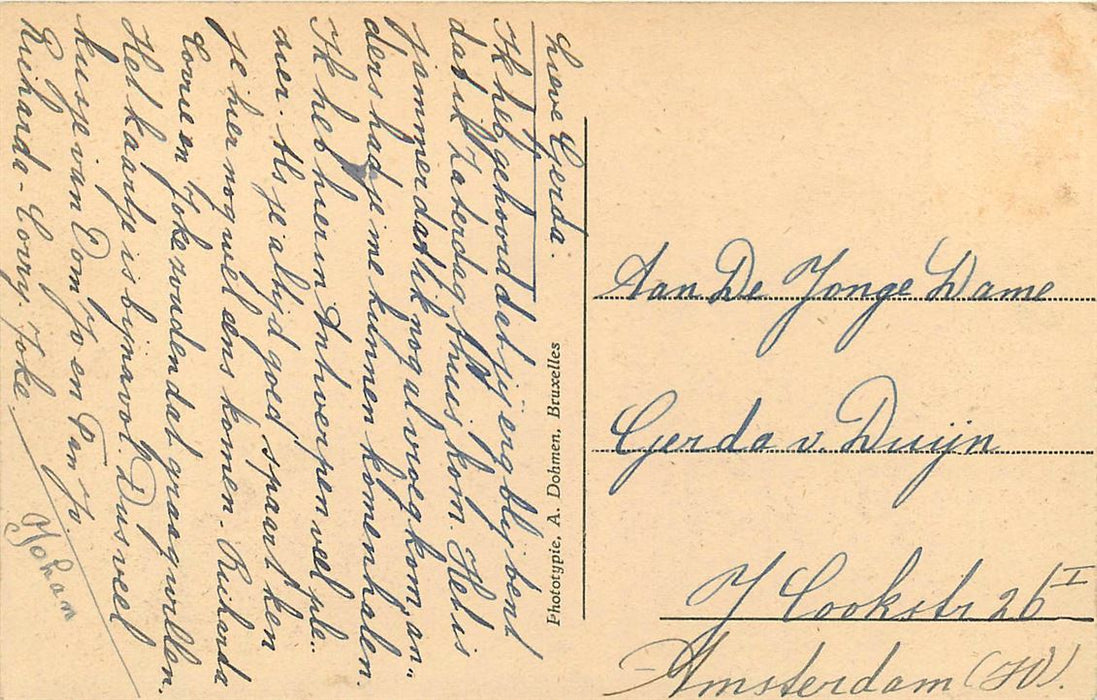 Lieve Gerda.
Ik heb gehoord dat jy erg bly bent
dat ik Zaterdag thuis kom. Het is
jammer dat ik nog al vroeg kom, an„
ders had je me kunnen komen halen.
Ik heb hier in Antwerpen veel ple„
zier. Als je altyd goed spaart ken
je hier nog wel eens komen. Richarda
Corrie en Joke zouden dat graag willen.
Het kaartje is byna vol. Dus veel
kusjes van Oom Jo en Tan Jo.
Richarda - Corry. Joke.
Johan
Phototypie, A. Dohmen, Bruxelles
Aan De Jonge Dame
Gerda v. Duijn
J Cookstr 26 I
Amsterdam (W).